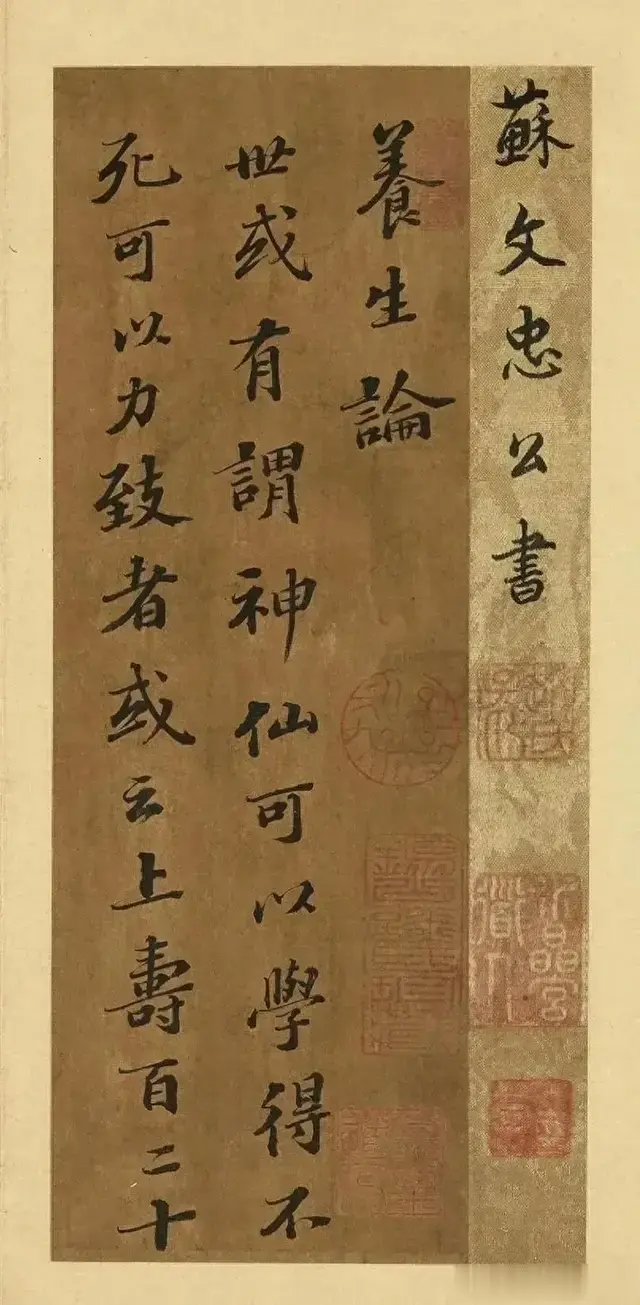 蘇文忠公書
養生論
世或有謂神仙可以學得不
死可以力致者或云上壽百二十